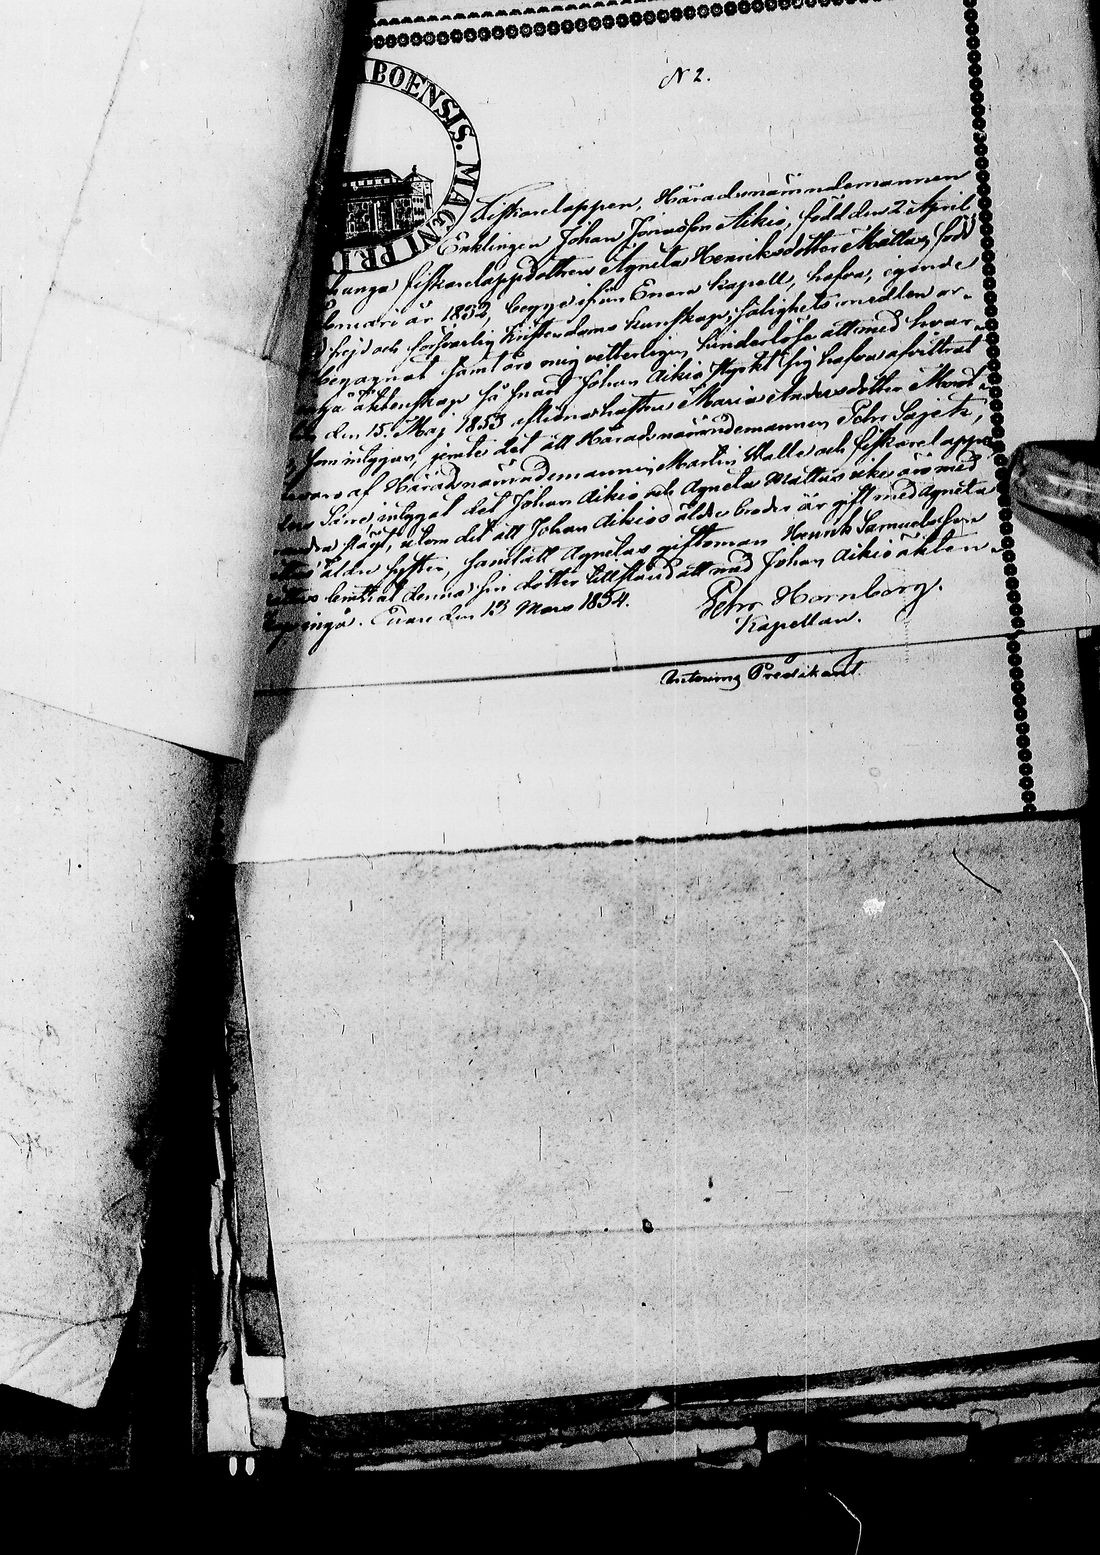 N 2.
ABOENSIS. MAGNI PRI
Fiskarelappen, Häradsnämndemannen
Enklingen Johan Jonasson Aikio, född den 2 April
unga fiskarelappdottren Agneta Henriksdotter Mattus, född
bruari år 1832, begge ifrån Enare Kapell, hafva, egande
frejd och försvarlig Kristendoms kunskap, salighets medlen or-
begagnat samt äro mig vetterligen hinderlösa att med hvar-
ingå äktenskap så snart Johan Aikio styrkt sig hafva afvittrat
den 15. Maj 1853 aflidna hustru Maria Andersdotter Morot-
som intygas, jemte det att Häradsnämndemannen Petr Sajets,
af Häradsnämndemannen Martin Walle och fiskarelappen
Sire, intygat det Johan Aikio och Agneta Mattus icke äro med
andra slägt, utom det att Johan Aikios äldre broder är gift med Agneta
äldre syster, samt att Agnetas giftoman Henrik Samuelsson
denna sin dotter tillstånd att med Johan Aikio äkten-
ingå. Enare den 13 Mars 1854.
Petr. Hornborg.
Kapellan.
Interims Predikant.